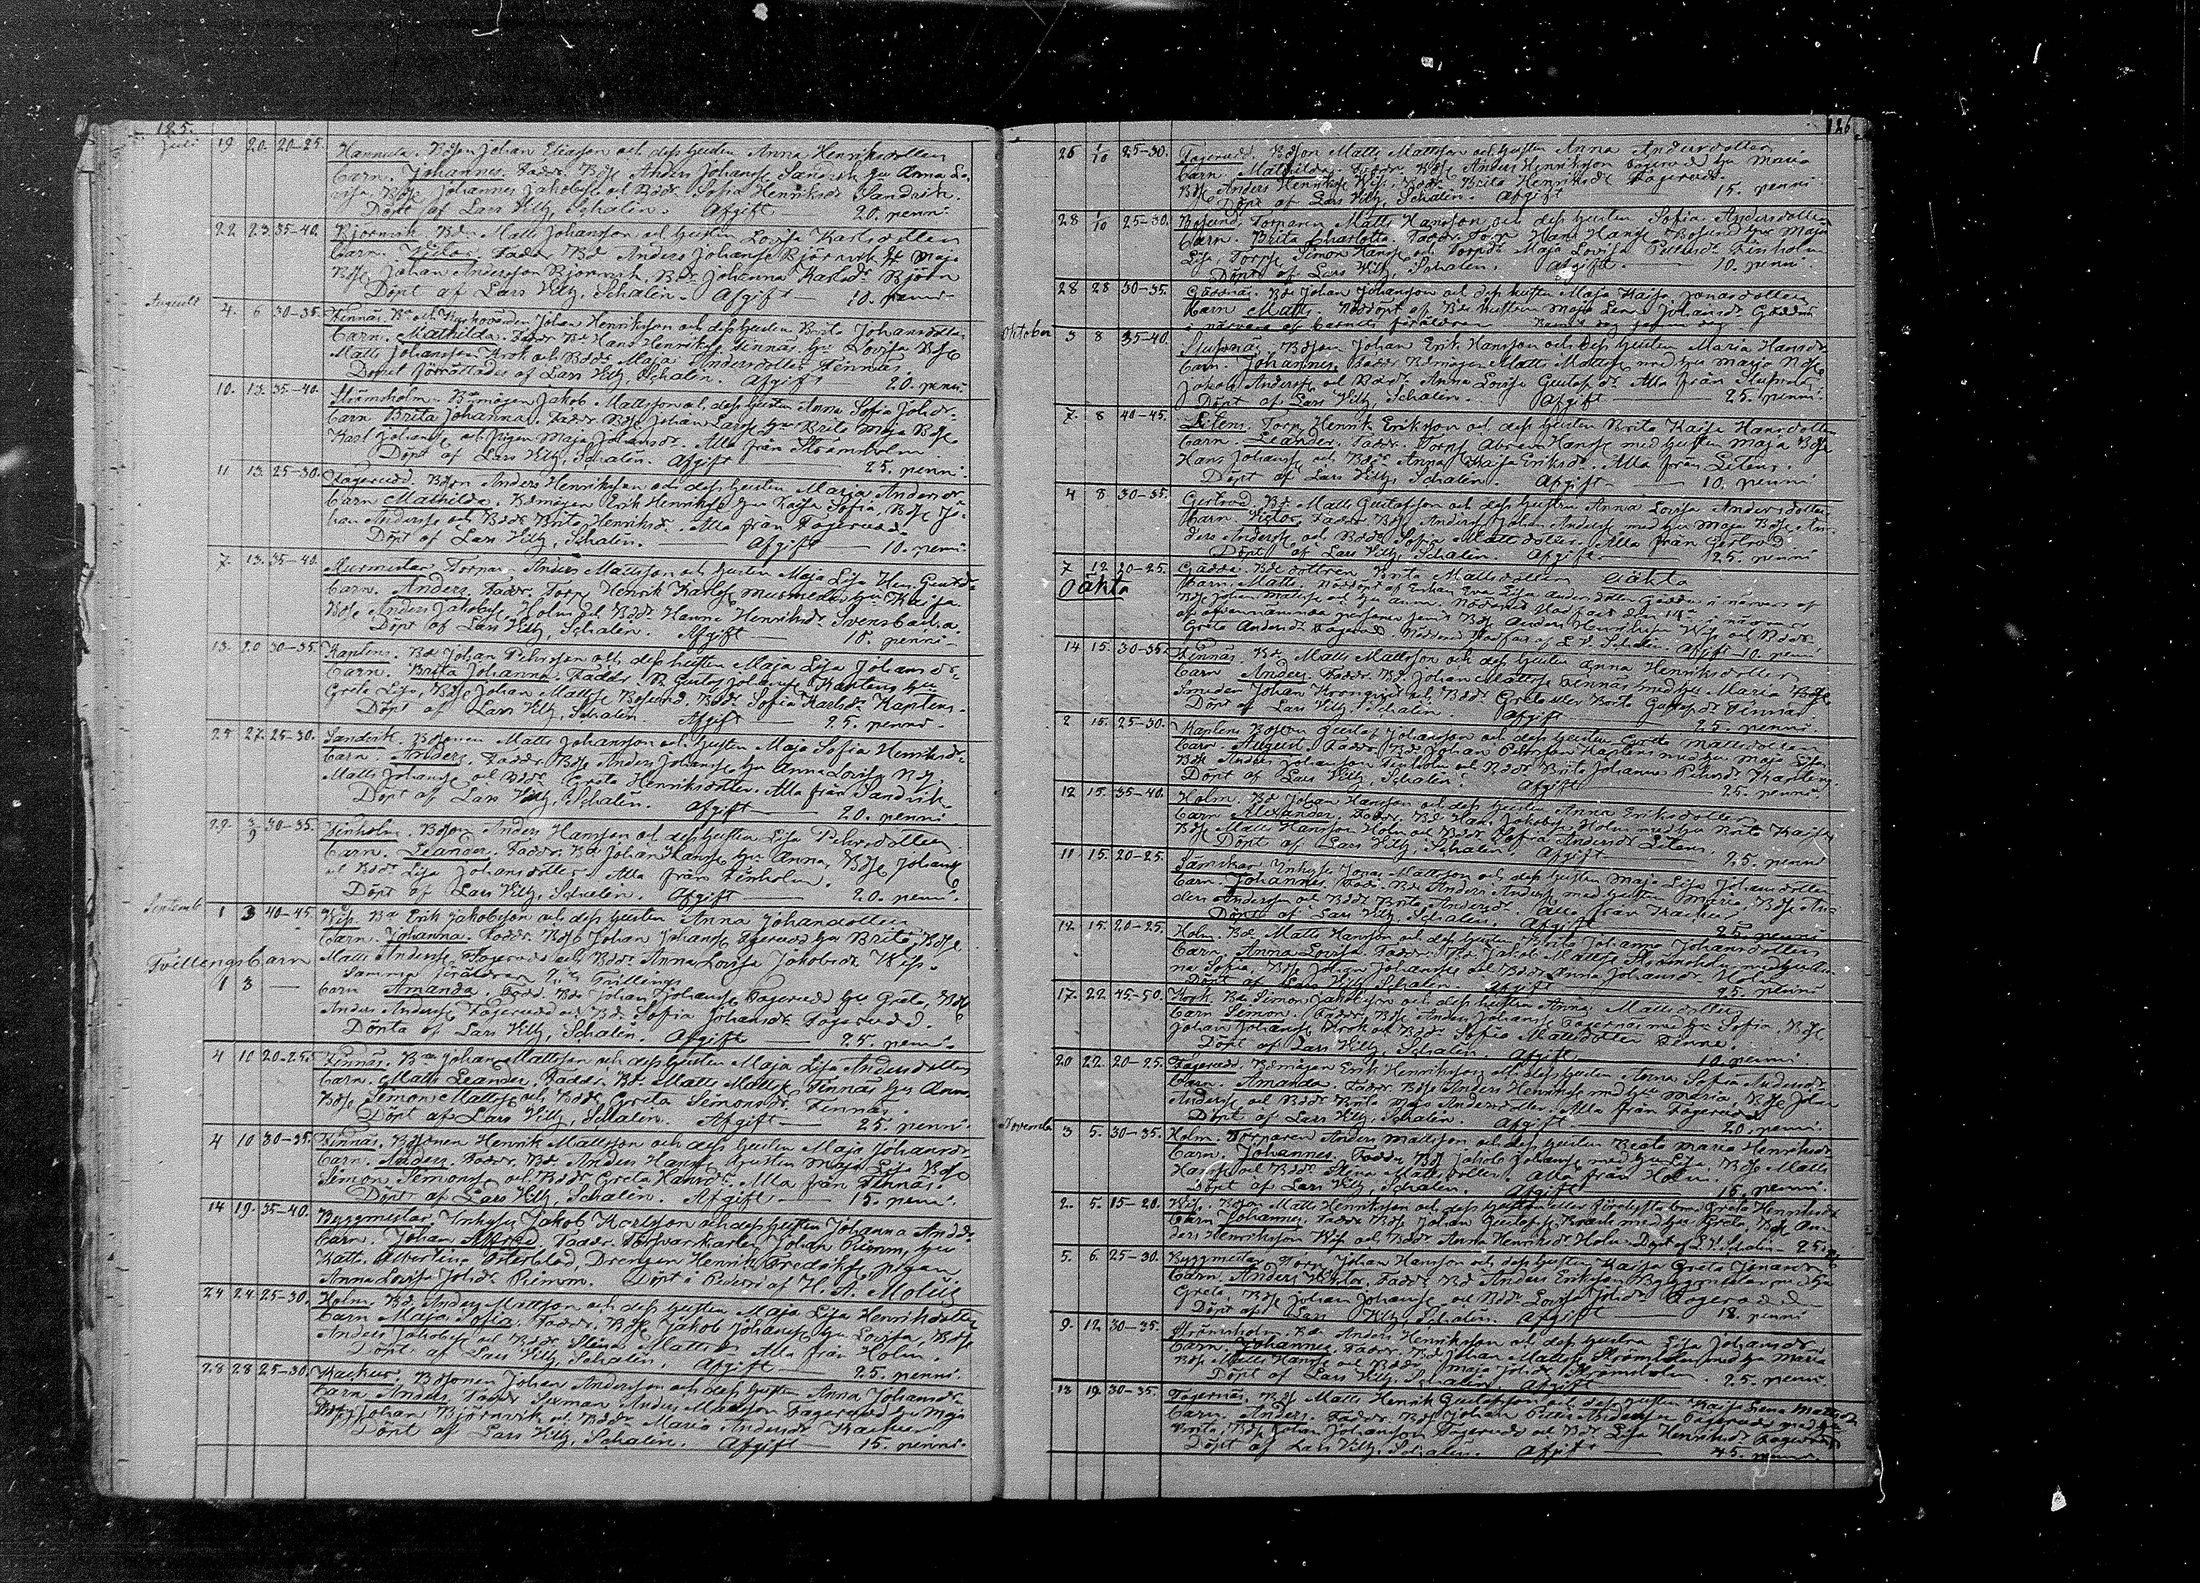 185.
Juli 19 20. 20-25. Hannula. Bdson Johan Eliasson och dess hustru Anna Henriksdotter
Barn. Johannes. Faddr. Bdsse Anders Johansse Sandvik hu Anna Lo-
visa, Bdsse Johannes Jakobsse och Bddr Sofia Henriksdr Sandvik.
Döpt af Lars Vilh. Schalin. Afgift 20. penni
22 23 35-40. Björnvik. Bd. Matts Johansson och hustru Lovisa Karlsdotter
Barn. Viktor. Faddr Bd Anders Johansse Björnvik hu Maja
Bdsse Johan Andersson Björnvik, Bdr Johanna Karlsdr Björn
Döpt af Lars Vilh. Schalin. Afgift 10. penni
Augusti 4. 6 30-35. Finnäs. Bd och Kyrkovärden Johan Henriksson och dess hustru Brita Johansdotter
Barn. Mathilda. Faddr Bd Hans Henriksse Finnäs hu Lovisa Bdsse
Matts Johansson Krok och Bddr Maja Andersdotter Finnäs.
Dopet förrättades af Lars Vilh. Schalin. Afgift 20. penni
10. 13. 35-40. Strömsholm. Bdmågen Jakob Mattsson och dess hustru Anna Sofia Johdr.
Barn Brita Johanna. Faddr Bdsse Johan Larsse hu Brita Maja Bdsse
Karl Johansse och pigan Maja Johansdr. Alla från Strömsholm.
Döpt af Lars Vilh. Schalin. Afgift 25. penni
11 13. 25-30. Fagerudd. Bdson Anders Henriksson och dess hustru Maria Andersdr
Barn Mathilda. Bdmågen Erik Henriksse hu Kajsa Sofia, Bdsse Jo-
han Andersse och Bddr Brita Henriksdr. Alla från Fagerudd.
Döpt af Lars Vilh. Schalin. Afgift 10. penni
7. 13. 35-40. Murmestar. Torpar. Anders Mattsson och hustru Maja Lisa
Barn. Anders. Faddr. Torp Henrik Karlsse Murmestar hu Kajsa
Bdsse Anders Jakobsse Holm och Bddr Hanna Henriksdr Svensbacka.
Döpt af Lars Vilh. Schalin. Afgift 10. penni
13. 20 30-35. Kaptens. Bd Johan Pehrsson och dess hustru Maja Lisa Johansdr.
Barn. Brita Johanna. Faddr. Bd Gustaf Johansse Kaptens hu
Greta Lisa, Bdsse Johan Mattsse Bosund, Bddr Sofia Karlsdr Kaptens.
Döpt af Lars Vilh. Schalin. Afgift 25. penni
25 27. 25-30. Sandvik. Bdsonen Matts Johansson och hustru Maja Sofia Henriksdr
Barn. Anders. Faddr. Bdsse Anders Johansse hu Anna Lovisa, Bdsse
Matts Johansse och Bddr Greta Henriksdotter. Alla från Sandvik.
Döpt af Lars Vilh. Schalin. Afgift 20. penni
29. 3/9 30-35. Finholm. Bdson Anders Hansson och dess hustru Lisa Pehrsdotter
Barn. Leander. Faddr. Bd Johan Hansse hu Anna, Bdsse Johans
och Bddr Lisa Johansdotter. Alla från Finholm.
Döpt af Lars Vilh. Schalin. Afgift 20. penni
Septemb. 1 3 40-45. Wiss. Bd Erik Jakobsson och dess hustru Anna Johansdotter
Barn. Johanna. Faddr. Bdsse Johan Johansse Fagerudd hu Brita, Bdsse
Tvillings Barn Matts Andersse Fagerudd och Bddr Anna Lovisa Jakobsdr Wiss.
Samma föräldrar 2:dra Tvilling.
1 3 — Barn Amanda. Fadd. Bd Johan Johansse Fagerudd hu Greta, Bdsse
Anders Andersse Fagerudd och Bdr Sofia Johansdr Fagerudd.
Döpta af Lars Vilh. Schalin. Afgift 25. penni
4 10 20-25. Finnäs. Bdson Johan Mattsson och dess hustru Maja Lisa Andersdotter
Barn. Matts Leander. Faddr. Bd. Matts Mattsse Finnäs hu Anna
Bdsse Simon Mattsse och Bddr Greta Simonsdr Finnäs.
Döpt af Lars Vilh. Schalin. Afgift 25. penni
4 10 30-35. Finnäs. Bdsonen Henrik Mattsson och dess hustru Maja Johansdr
Barn. Anders. Faddr. Bd Anders Hansse hustru Maja Lisa Bdsse
Simon Simonsse och Bddr Greta Hansdr. Alla från Finnäs.
Döpt af Lars Vilh. Schalin. Afgift 15. penni
14 19. 35-40. Byggmestar. Inhyses Jakob Karlsson och dess hustru Johanna Andersdr
Barn. Johan Alfred. Faddr. Försvarskarlen Johan Primm, hu
Kath. Albertina Österblad, Drengen Henrik Fredriksse, pigan
Anna Lovisa Johsdr Primm. Döpt i Pedersö af H. A. Molüs
24 24 25-30. Holm. Bd. Anders Mattsson och dess hustru Maja Lisa Henriksdotter
Barn Maja Sofia. Faddr. Bdsse Jakob Johansse hu Lovisa, Bdsse
Anders Jakobsse och Bddr. Stina Mattsdr. Alla från Holm.
Döpt af Lars Vilh. Schalin. Afgift 25. penni
28 28 25-30. Kackur. Bdsonen Johan Andersson och dess hustru Anna Johansdr
Barn Anders. Faddr Sexman Anders Mattsson Fagerudd hu Maja
Bdsse Johan Björnvik och Bddr Maria Andersdr Kackur
Döpt af Lars Vilh. Schalin. Afgift 15. penni
126
26 1/10 25-30. Fagerudd. Bdson Matts Mattsson och hustru Anna Andersdotter
Barn Mathilda. Faddr. Bdsse Anders Henriksson Fagerudd hu Maria
Bdsse Anders Henriksse Wiss, Bddr. Brita Henriksdr Fagerudd.
Döpt af Lars Vilh. Schalin. Afgift 15. penni
28 1/10 25-30. Bosund. Torparen Matts Hansson och dess hustru Sofia Andersdotter
Barn. Brita Charlotta. Faddr. Torp Hans Hansse Bosund hu Maja
Lisa, Torpsse Simon Hansse och Torpdr Maja Lovisa Pettersdr Finholm
Döpt af Lars Vilh. Schalin. Afgift 10. penni
28 28 30-35. Gäddnäs. Bd. Johan Johansson och dess hustru Maja Kajsa Jonasdotter
Barn Matts. Nöddöpt af Bde hustrun Maja Lena Johansdr Gäddnäs
i närvaro af barnets föräldrar
Oktober 3 8 35-40. Slussnäs. Bdson Johan Erik Hansson och dess hustru Maria Hansdr
Barn. Johannes. Faddr Bdmågen Matts Mattsse med hu Maja, Bdsse
Jakob Andersse och Bddr. Anna Lovisa Gustafsdr. Alla från Slussnäs.
Döpt af Lars Vilh. Schalin. Afgift 25. penni
7. 8 40-45. Litens. Torp. Henrik Eriksson och dess hustru Brita Kajsa Hansdotter
Barn. Leander. Faddr. Torpsse Abram Hansse med hustru Maja Bdsse
Hans Johansse och Bddr Anna Kajsa Eriksdr. Alla från Litens.
Döpt af Lars Vilh. Schalin. Afgift 10. penni
4 8 30-35. Gertrud. Bd. Matts Gustafsson och dess hustru Anna Lovisa Andersdotter
Barn. Victor. Faddr Bdsse Anders Johan Andersse med hu Maja Bdsse An-
ders Andersse och Bddr Sofia Mattsdotter. Alla från Gertrud
Döpt af Lars Vilh. Schalin. Afgift 25. penni
7 12 20-25. Gädda. Bdedottren Brita Mattsdotter oäkta
Oäkta Barn. Matts. Nöddöpt af Enkan Eva Lisa Andersdotter Gädda i närvaro af
Bdsse Johan Mattsse och hu Anna. Nöddopet stadfäst den 14 i närvaro
af ofvannämnda personer jemte Bdsse Anders Henriksson Wiss och Bddr
Greta Andersdr Fagerudd. Nöddopet stadfäst af L. V. Schalin. Afgift 10. penni
14 15. 30-35. Finnäs. Bd. Matts Mattsson och dess hustru Anna Henriksdotter
Barn Anders. Faddr. Bd. Johan Mattsse Finnäs med hu Maria
Smeden Johan Kronqvist och Bddr Greta eller Brita Gustafsdr Finnäs
Döpt af Lars Vilh. Schalin. Afgift 25. penni
2 15. 25-30. Kaptens Bdson Gustaf Johansson och dess hustru Greta Mattsdotter
Barn. August. Faddr. Bd Johan Pehrsson Kaptens med hu Maja Lisa,
Bdsse Anders Johansson Finholm och Bddr Brita Johanna Pehrsdr Kaptens
Döpt af Lars Vilh. Schalin. Afgift 25. penni
12 15. 35-40. Holm. Bd Johan Hansson och dess hustru Anna Eriksdotter
Barn Alexander. Faddr. Bd Hans Jakobsse Holm med hu Brita Kajsa
Bdsse Matts Hansson Holm och Bddr Sofia Andersdr Litens.
Döpt af Lars Vilh. Schalin. Afgift 25. penni
11 15. 20-25. Sämskar Inhyses Jonas Mattsson och dess hustru Maja Lisa Johansdotter
Barn. Johannes. Fadd. Bd Anders Andersse med hustru Maria, Bdsse An-
ders Andersson och Bddr Brita Andersdr. Alla från Kackur
Döpt af Lars Vilh. Schalin. Afgift 25. penni
12. 15. 20-25. Holm. Bd. Matts Hansson och dess hustru Brita Johanna Johansdotter
Barn. Anna Lovisa. Faddr. Bd. Jakob Mattsse Strömsholm med hu An-
na Sofia, Bdsse Johan Johansse och Bddr Anna Johansdr Holm
Döpt af Lars Vilh. Schalin. Afgift 25. penni
17. 22. 45-50. Krok. Bd. Simon Jakobsson och dess hustru Anna Mattsdotter
Barn Simon. Faddr. Bdsse Anders Johansse Fagernäs med hu Sofia, Bdsse
Johan Johansse Krok och Bddr Sofia Mattsdotter Finne.
Döpt af Lars Vilh. Schalin. Afgift 10. penni
20 22. 20-25. Fagerudd. Bdmågen Erik Henriksson och dess hustru Anna Sofia Andersdr
Barn. Amanda. Faddr. Bdsse Anders Henriksse med hu Maria, Bdsse Johan
Andersse och Bddr. Brita Maja Andersdotter. Alla från Fagerudd
Döpt af Lars Vilh. Schalin. Afgift 20. penni
November 3 5. 30-35. Holm. Torparen Anders Mattsson och dess hustru Beata Maria Henriksdr
Barn. Johannes. Faddr Bdsse Jakob Johansse med hu Lisa, Bdsse Matts
Hansse och Bddr. Stina Mattsdotter. Alla från Holm.
Döpt af Lars Vilh. Schalin. Afgift 15. penni
2. 5. 15-20. Wiss. Bdson Matts Henriksson och dess hustru eller Förelofvade Greta Henriksdr
Barn Johannes. Faddr Bdsse Johan Gustafsse med hu Greta, Bdsse An-
ders Henriksson Wiss och Bddr Anna Henriksdr Holm. Döpt af L. V. Schalin. 25. p
5. 6. 25-30. Byggmestar. Torp. Johan Hansson och dess hustru Kajsa Greta
Barn. Anders Viktor. Faddr. Bd Anders Eriksson Byggmestar med hu
Greta, Bdsse Johan Johansse och Bddr Lovisa Johsdr Fagerudd
Döpt af Lars Vilh. Schalin. Afgift 18. penni
9. 12 30-35. Strömsholm. Bd Anders Henriksson och dess hustru Lisa Johansdr
Barn. Johannes. Faddr. Bd Johan Mattsse Strömsholm med hu Maria
Bdsse Matts Hansse och Bddr Maja Johsdr Strömsholm.
Döpt af Lars Vilh. Schalin Afgift 25. penni
13 19. 30-35. Fagernäs. Bdsse Matts Henrik Gustafsson och dess hustru Kajsa Lena Mattsdr
Barn. Anders. Faddr. Bdsse Johan Petter Andersson Fagerudd med hu
Brita, Bdsse Johan Johansson Fagerudd och Bddr Lisa Henriksdr Fagerudd
Döpt af Lars Vilh. Schalin. Afgift 45. penni